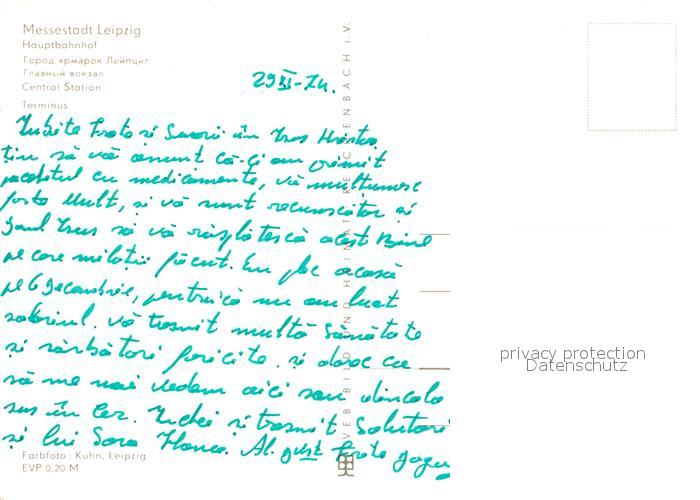 Messestadt Leipzig
Hauptbahnhof
Город ярмарок Лейпциг
Главный вокзал
Central Station
Terminus
29 XI-74.
Iubite Frate și Surori în Isus Hristos
țin să vă anunț că-ți am primit
pachetul cu medicamente, vă mulțumesc
forte mult, și vă sunt recunoscător și
Domnul Isus să vă răsplătească acest Bine
pe care mi lați făcut. Eu plec acasă
pe 6 decembrie, pentrucă nu am luat
salariul. vă trasmit multă Sănătate
și sărbători fericite. și doresc ca
să ne mai vedem aici sau dincolo
sus în Cer. Închei și trasmit Salutări
și lui Sora Al. frate
Farbfoto: Kuhn, Leipzig
EVP 0,20 M
VEB BILD UND HEIMAT REICHENBACH i.V.
privacy protection
Datenschutz